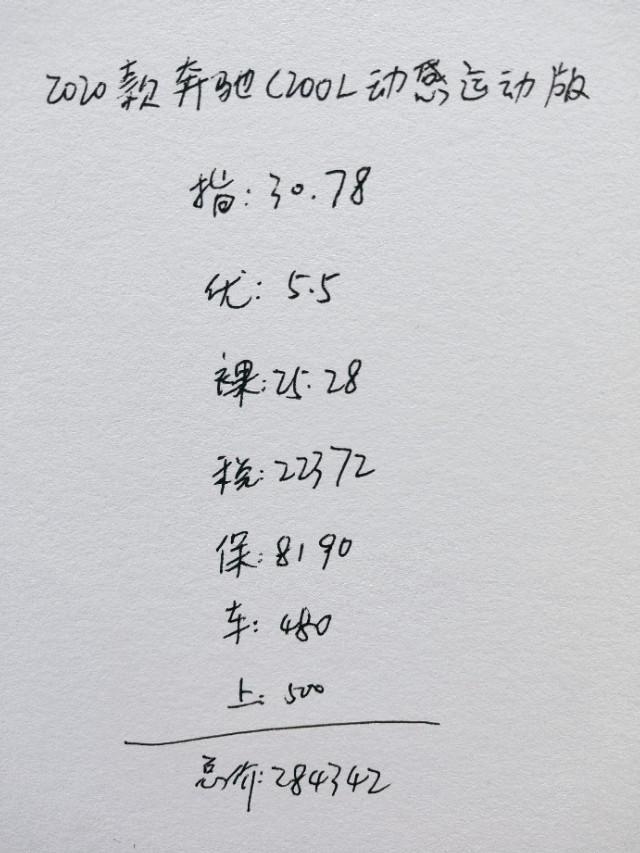 2020款奔驰C200L动感运动版
指:30.78
优:5.5
裸:25.28
税:22372
保:8190
车:480
上:500
总价:284342